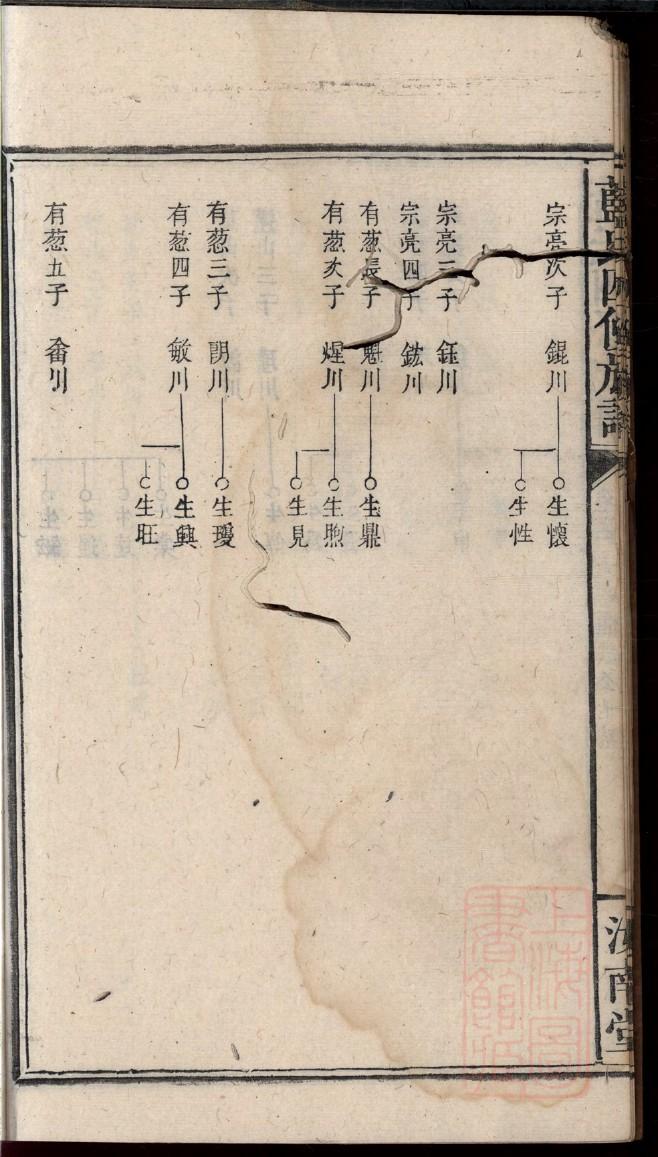 藍氏四修族譜
汝南堂
宗亮次子 錕川
生懷
生性
宗亮三子 鈺川
宗亮四子 鋐川
有葱長子 魁川
生鼎
有葱次子 煋川
生煦
生見
有葱三子 朗川
生瓊
有葱四子 敏川
生興
生旺
有葱五子 畬川
上海圖書館藏